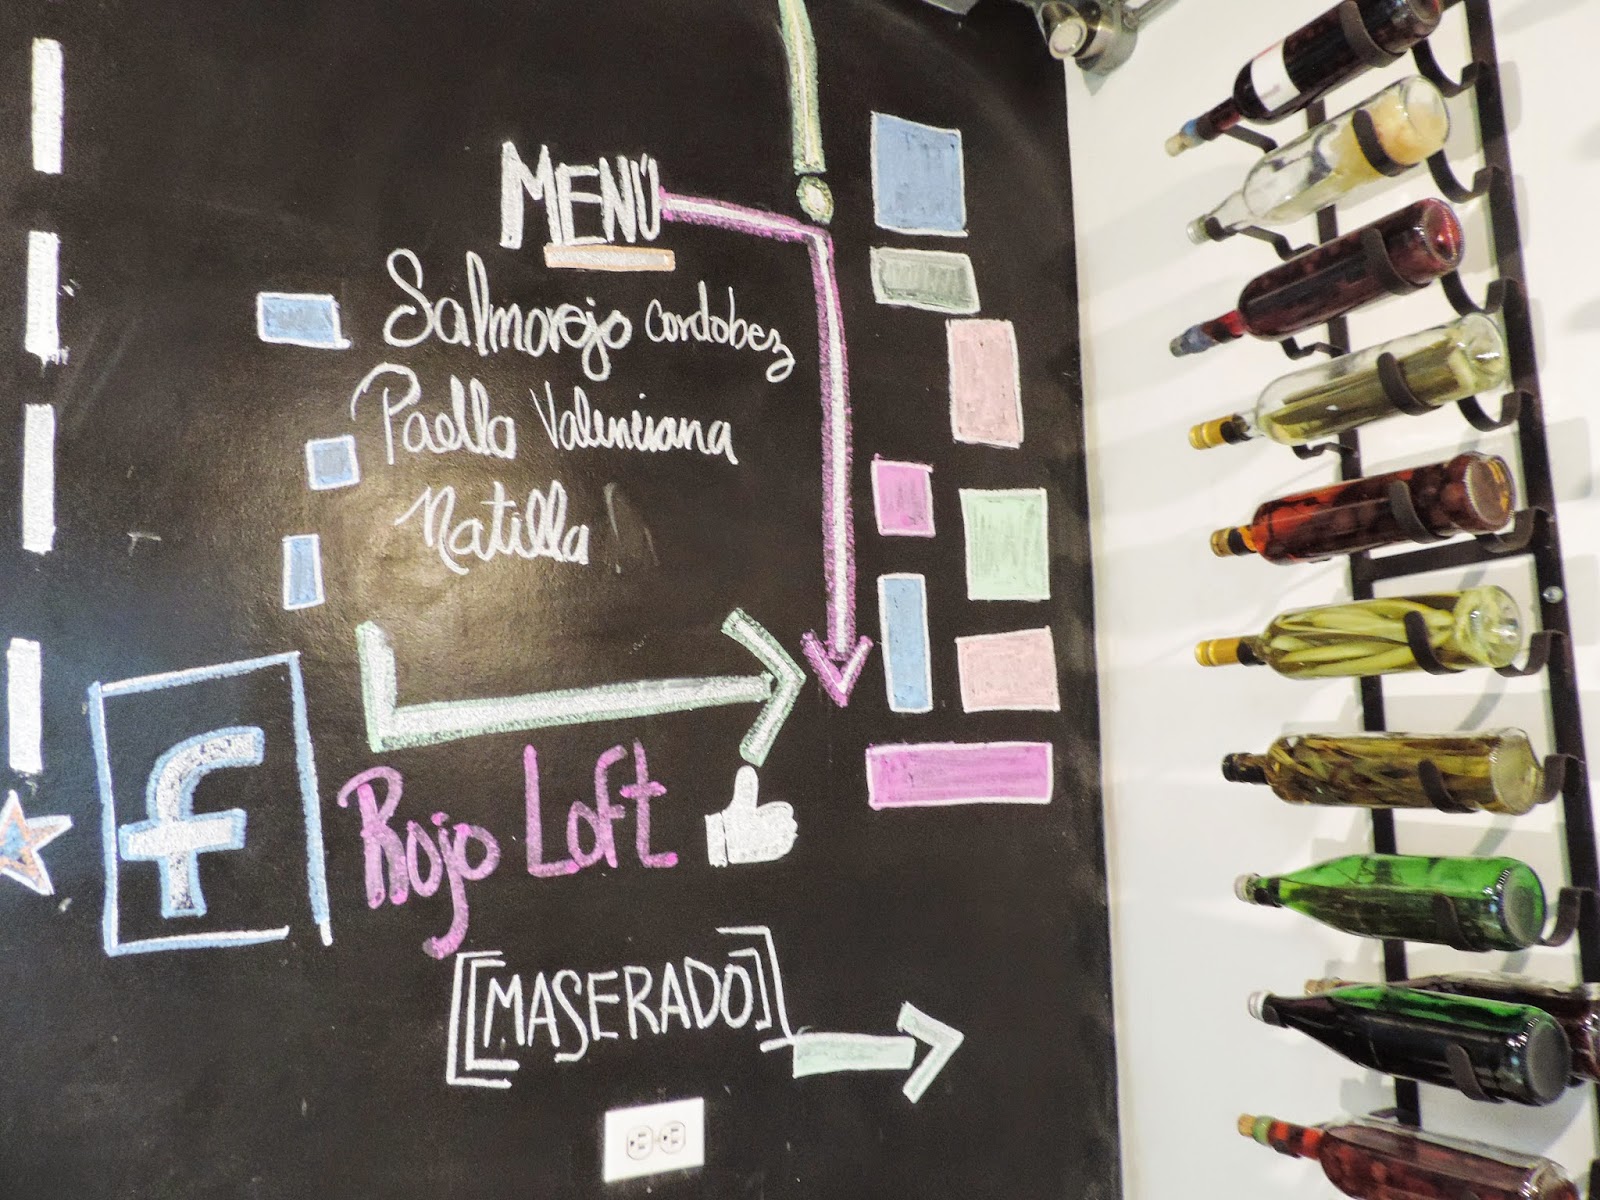 MENÚ
Salmorejo cordobez
Paella Valenciana
Natilla
f
Rojo Loft
[[MASERADO]]